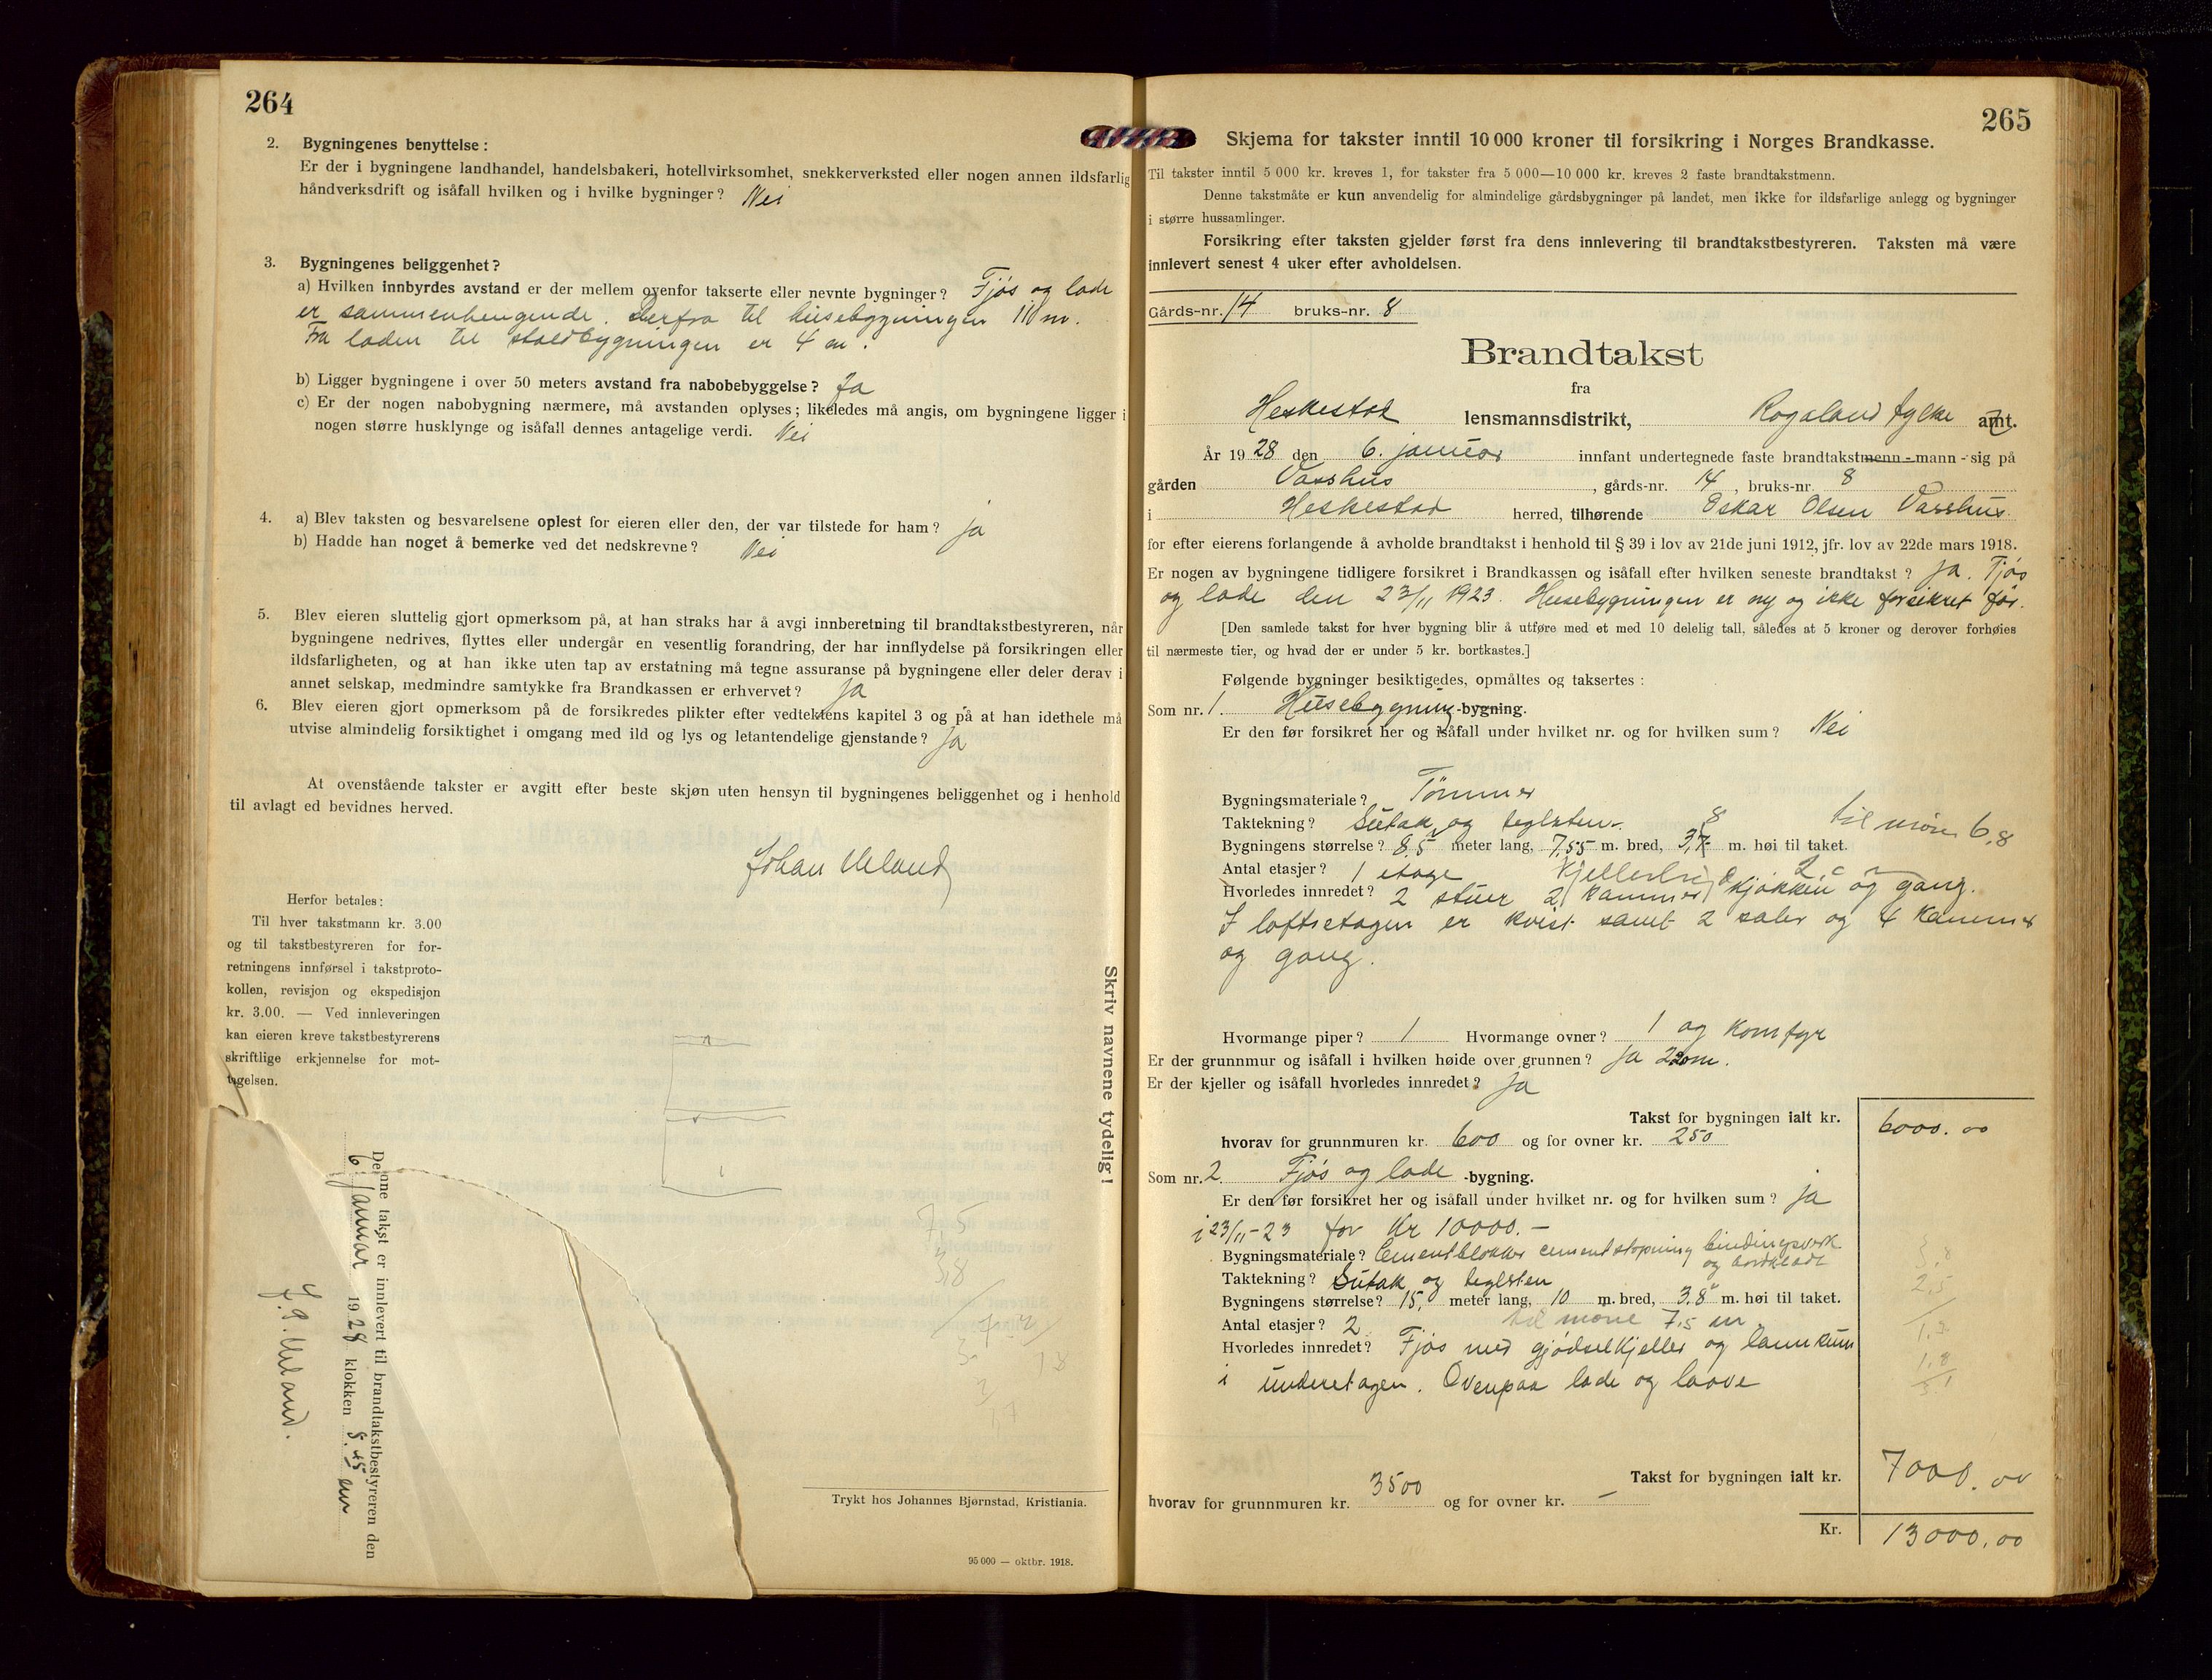 264
2. Bygningenes benyttelse:
Er der i bygningene landhandel, handelsbakeri, hotellvirksomhet, snekkerverksted eller nogen annen ildsfarlig
håndverksdrift og isåfall hvilken og i hvilke bygninger? Nei
3. Bygningenes beliggenhet?
a) Hvilken innbyrdes avstand er der mellem ovenfor takserte eller nevnte bygninger? Fjøs og lade
er sammenhengende. Derfra til husebygningen 110 m.
Fra laden til staldbygningen er 4 m.
b) Ligger bygningene i over 50 meters avstand fra nabobebyggelse? Ja
c) Er der nogen nabobygning nærmere, må avstanden oplyses; likeledes må angis, om bygningene ligger i
nogen større husklynge og isåfall dennes antagelige verdi. Nei
4. a) Blev taksten og besvarelsene oplest for eieren eller den, der var tilstede for ham? ja
b) Hadde han noget å bemerke ved det nedskrevne? Nei
5. Blev eieren sluttelig gjort opmerksom på, at han straks har å avgi innberetning til brandtakstbestyreren, når
bygningene nedrives, flyttes eller undergår en vesentlig forandring, der har innflydelse på forsikringen eller
ildsfarligheten, og at han ikke uten tap av erstatning må tegne assuranse på bygningene eller deler derav i
annet selskap, medmindre samtykke fra Brandkassen er erhvervet? ja
6. Blev eieren gjort opmerksom på de forsikredes plikter efter vedtektens kapitel 3 og på at han idethele må
utvise almindelig forsiktighet i omgang med ild og lys og letantendelige gjenstande? ja
At ovenstående takster er avgitt efter beste skjøn uten hensyn til bygningenes beliggenhet og i henhold
til avlagt ed bevidnes herved.
Johan Ueland
Herfor betales:
Til hver takstmann kr. 3.00
og til takstbestyreren for for-
retningens innførsel i takstproto-
kollen, revisjon og ekspedisjon
kr. 3.00. — Ved innleveringen
kan eieren kreve takstbestyrerens
skriftlige erkjennelse for mot-
tagelsen.
Skriv navnene tydelig!
Denne takst er innlevert til brandtakstbestyreren den
6 januar 1928 klokken 8.45 em
7,5
3,8
Trykt hos Johannes Bjørnstad, Kristiania.
95 000 — oktbr. 1918.
265
Skjema for takster inntil 10 000 kroner til forsikring i Norges Brandkasse.
Til takster inntil 5 000 kr. kreves 1, for takster fra 5 000—10 000 kr. kreves 2 faste brandtakstmenn.
Denne takstmåte er kun anvendelig for almindelige gårdsbygninger på landet, men ikke for ildsfarlige anlegg og bygninger
i større hussamlinger.
Forsikring efter taksten gjelder først fra dens innlevering til brandtakstbestyreren. Taksten må være
innlevert senest 4 uker efter avholdelsen.
Gårds-nr. 14 bruks-nr. 8
Brandtakst
fra
Heskestad lensmannsdistrikt, Rogaland fylke amt.
År 1928 den 6. januar innfant undertegnede faste brandtakstmenn - mann - sig på
gården Vasshus, gårds-nr. 14, bruks-nr. 8
i Heskestad herred, tilhørende Oskar Olsen Vasshus
for efter eierens forlangende å avholde brandtakst i henhold til § 39 i lov av 21de juni 1912, jfr. lov av 22de mars 1918.
Er nogen av bygningene tidligere forsikret i Brandkassen og isåfall efter hvilken seneste brandtakst? ja. Fjøs
og lade den 23/11 1923. Husebygningen er ny og ikke forsikret før.
[Den samlede takst for hver bygning blir å utføre med et med 10 delelig tall, således at 5 kroner og derover forhøies
til nærmeste tier, og hvad der er under 5 kr. bortkastes.]
Følgende bygninger besiktigedes, opmåltes og taksertes:
Som nr. 1. Husebygning -bygning.
Er den før forsikret her og isåfall under hvilket nr. og for hvilken sum? Nei
Bygningsmateriale? Tømmer
Taktekning? Sutak og teglsten. til møne 6.8
Bygningens størrelse? 8,5 meter lang, 7,55 m. bred, 3,8 m. høi til taket.
Antal etasjer? 1 etage
Hvorledes innredet? 2 stuer 2 kammer kjøkken og gang.
I loftsetagen er kvist samt 2 saler og 4 kammer
og gang.
Hvormange piper? 1 Hvormange ovner? 1 og komfyr
Er der grunnmur og isåfall i hvilken høide over grunnen? ja
Er der kjeller og isåfall hvorledes innredet? ja
Takst for bygningen ialt kr. 6000.00
hvorav for grunnmuren kr. 600 og for ovner kr. 250
Som nr. 2. Fjøs og lade -bygning.
Er den før forsikret her og isåfall under hvilket nr. og for hvilken sum? ja
i 23/11-23 for Kr 10000.-
Bygningsmateriale? Cementblokker cementstøpning bindingsverk
og bordklædt
Taktekning? Sutak og teglsten
Bygningens størrelse? 15, meter lang, 10 m. bred, 3.8 m. høi til taket.
Antal etasjer? 2 til møne 7.5 m
Hvorledes innredet? Fjøs med gjødselkjeller og
i underetagen. Ovenpaa lade og laave
Takst for bygningen ialt kr. 7000.00
hvorav for grunnmuren kr. 3500 og for ovner kr. —
Kr. 13000.00